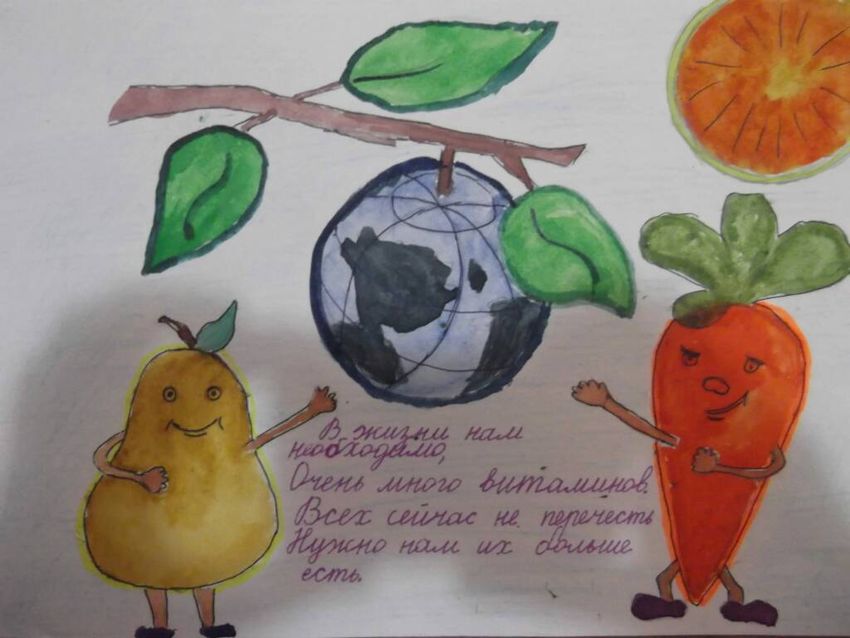 В жизни нам
необходимо,
Очень много витаминов.
Всех сейчас не перечесть
Нужно нам их больше
есть.